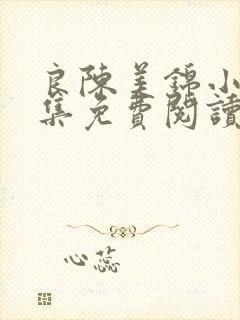 良陳美錦小
集免費閱讀
心蕊